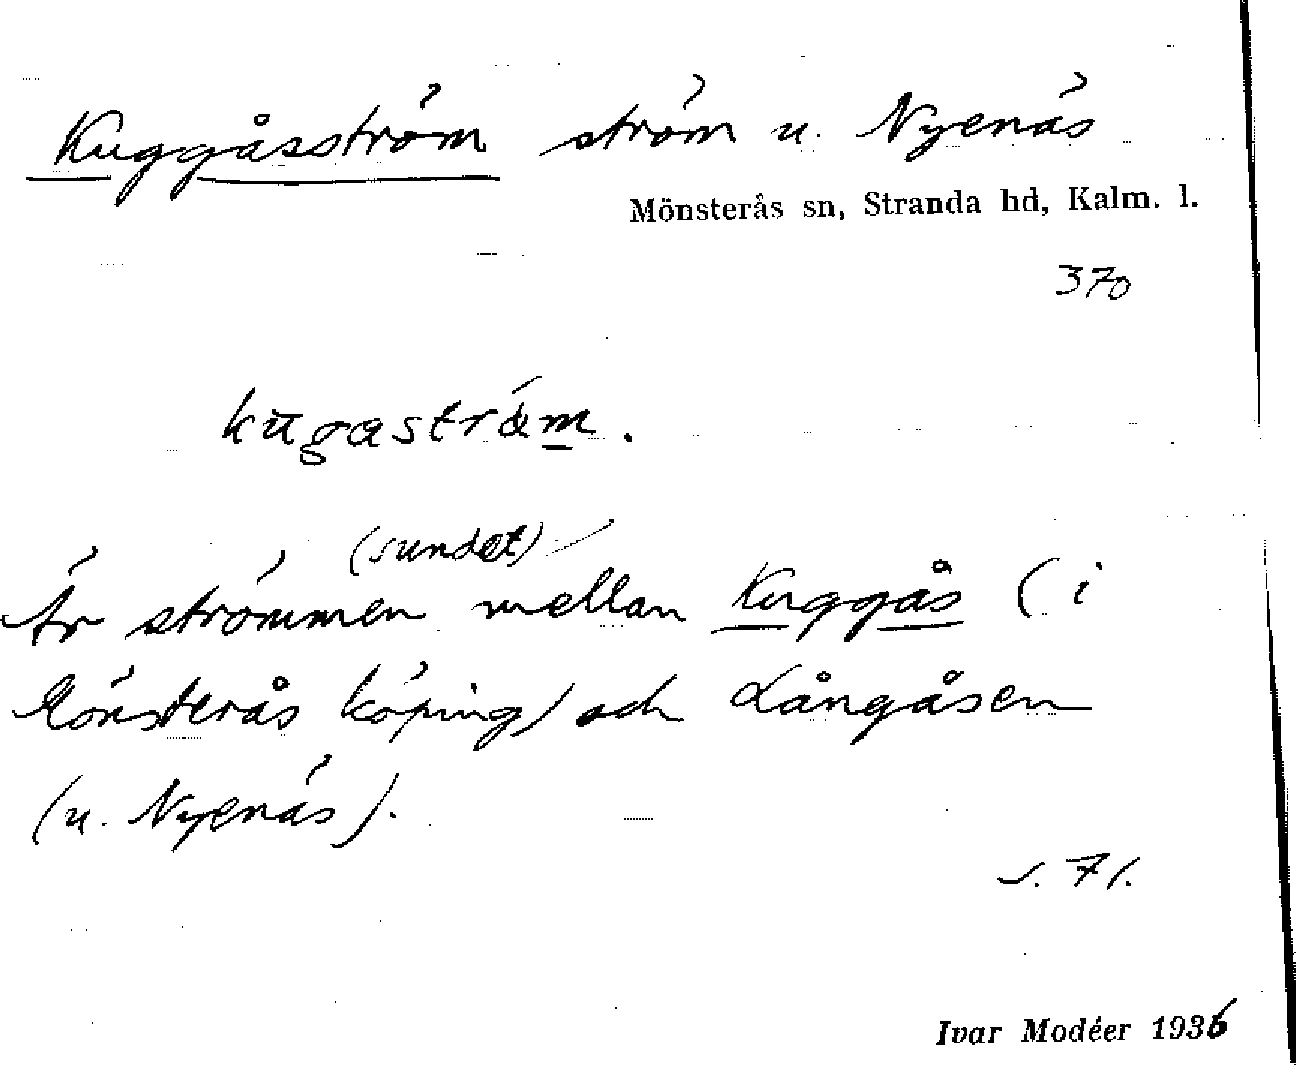 Kuggåsström ström u. Nyenäs
Mönsterås sn, Stranda hd, Kalm. l.
370
kūgaström.
(sundet)
Är strömmen mellan Kuggås (i
Mönsterås köping) och Långåsen
(u. Nyenäs).
s. 71.
Ivar Modéer 1936